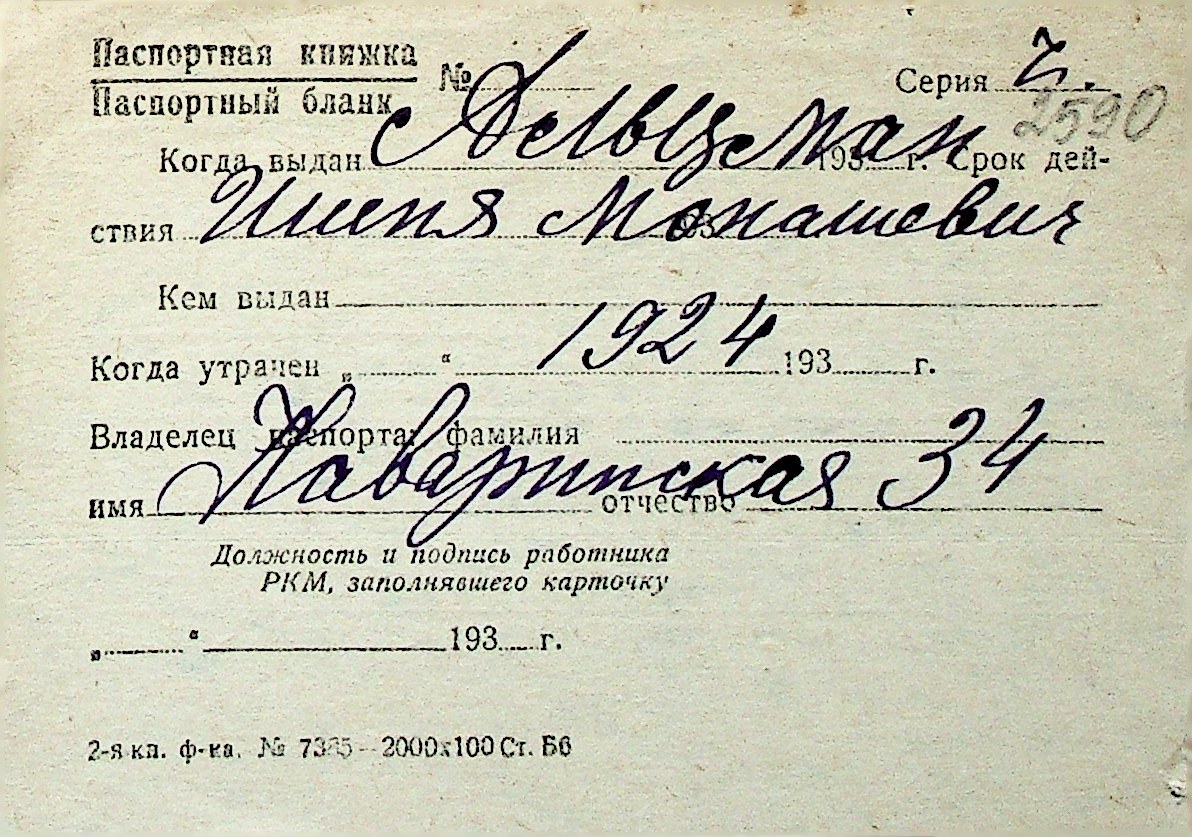 Паспортная книжка
Паспортный бланк № Серия
2590
Когда выдан 193 г. Срок дей-
ствия Монашевич 193
Кем выдан
Когда утрачен „ “ 1924 193 г.
Владелец паспорта: фамилия 34
имя отчество
Должность и подпись работника
РКМ, заполнявшего карточку
„ “ 193 г.
2-я кп. ф-ка. № 7365 – 2000х100 Ст. Б6